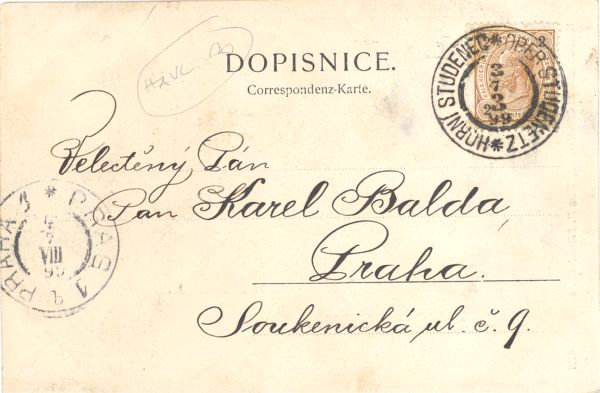 DOPISNICE.
Correspondenz-Karte.
HORNÍ STUDENEC * OBER-STUDENETZ *
Velectěný Pán
Pan Karel Balda,
Praha.
Soukenická ul. č. 9.
PRAHA 1 * PRAG 1
VIII